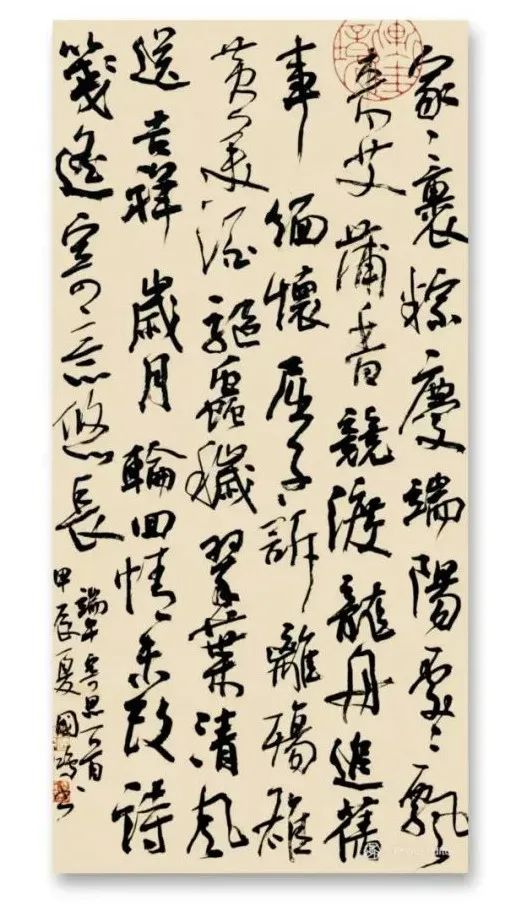 家々裹粽慶端陽處々飄
艾蒲香競渡龍舟追舊
事緬懷屈子訴離殤雄
黄美酒驅蟲穢翠葉清風
送吉祥歲月輪回情未改詩
箋遙寄意悠長
端午寄思一首
甲辰夏國鳴書